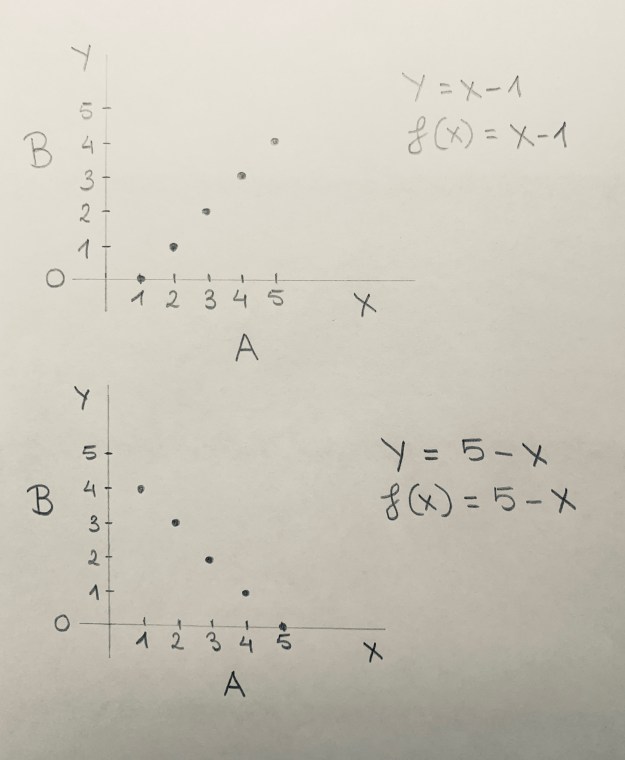 Y
Y = X - 1
f(x) = X - 1
5
B 4
3
2
1
0
1 2 3 4 5 X
A
Y
Y = 5 - X
f(x) = 5 - X
5
B 4
3
2
1
0
1 2 3 4 5 X
A